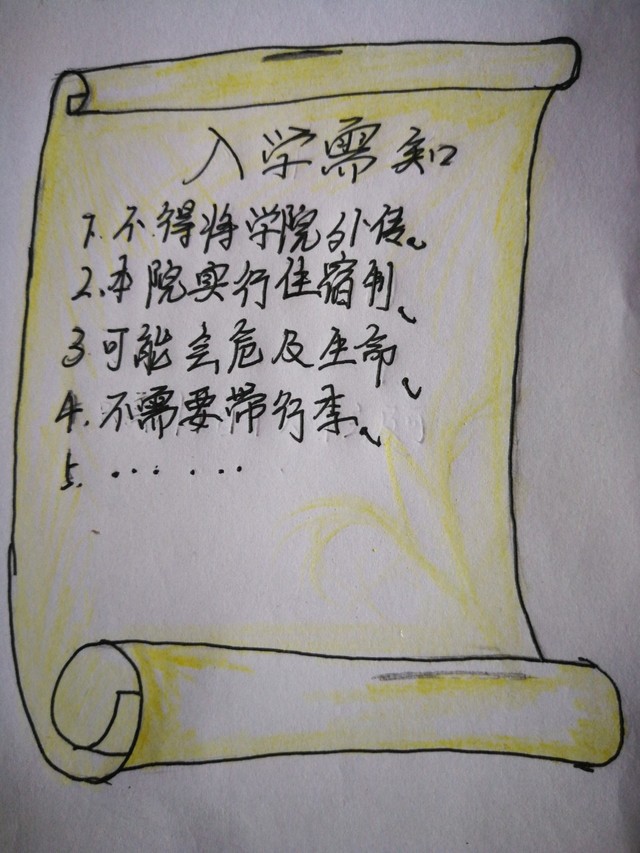 入学需知
1.不得将学院外传。
2.本院实行住宿制。
3.可能会危及生命。
4.不需要带行李。
5.……